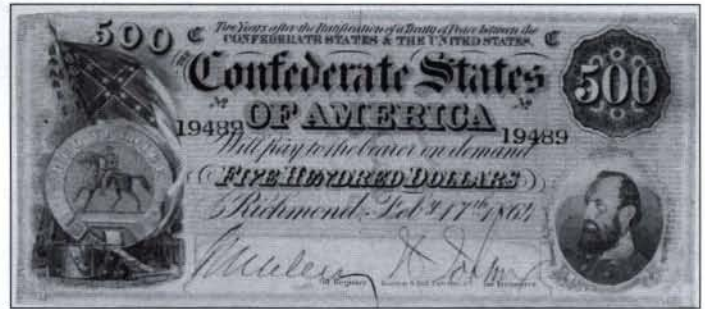 500 C Two Years after the Ratification of a Treaty of Peace between the C
CONFEDERATE STATES & THE UNITED STATES,
500
Confederate States
No No
OF AMERICA
19489 19489
Will pay to the bearer on demand
FIVE HUNDRED DOLLARS
Richmond Feby 17th 1864
for Register for Treasurer